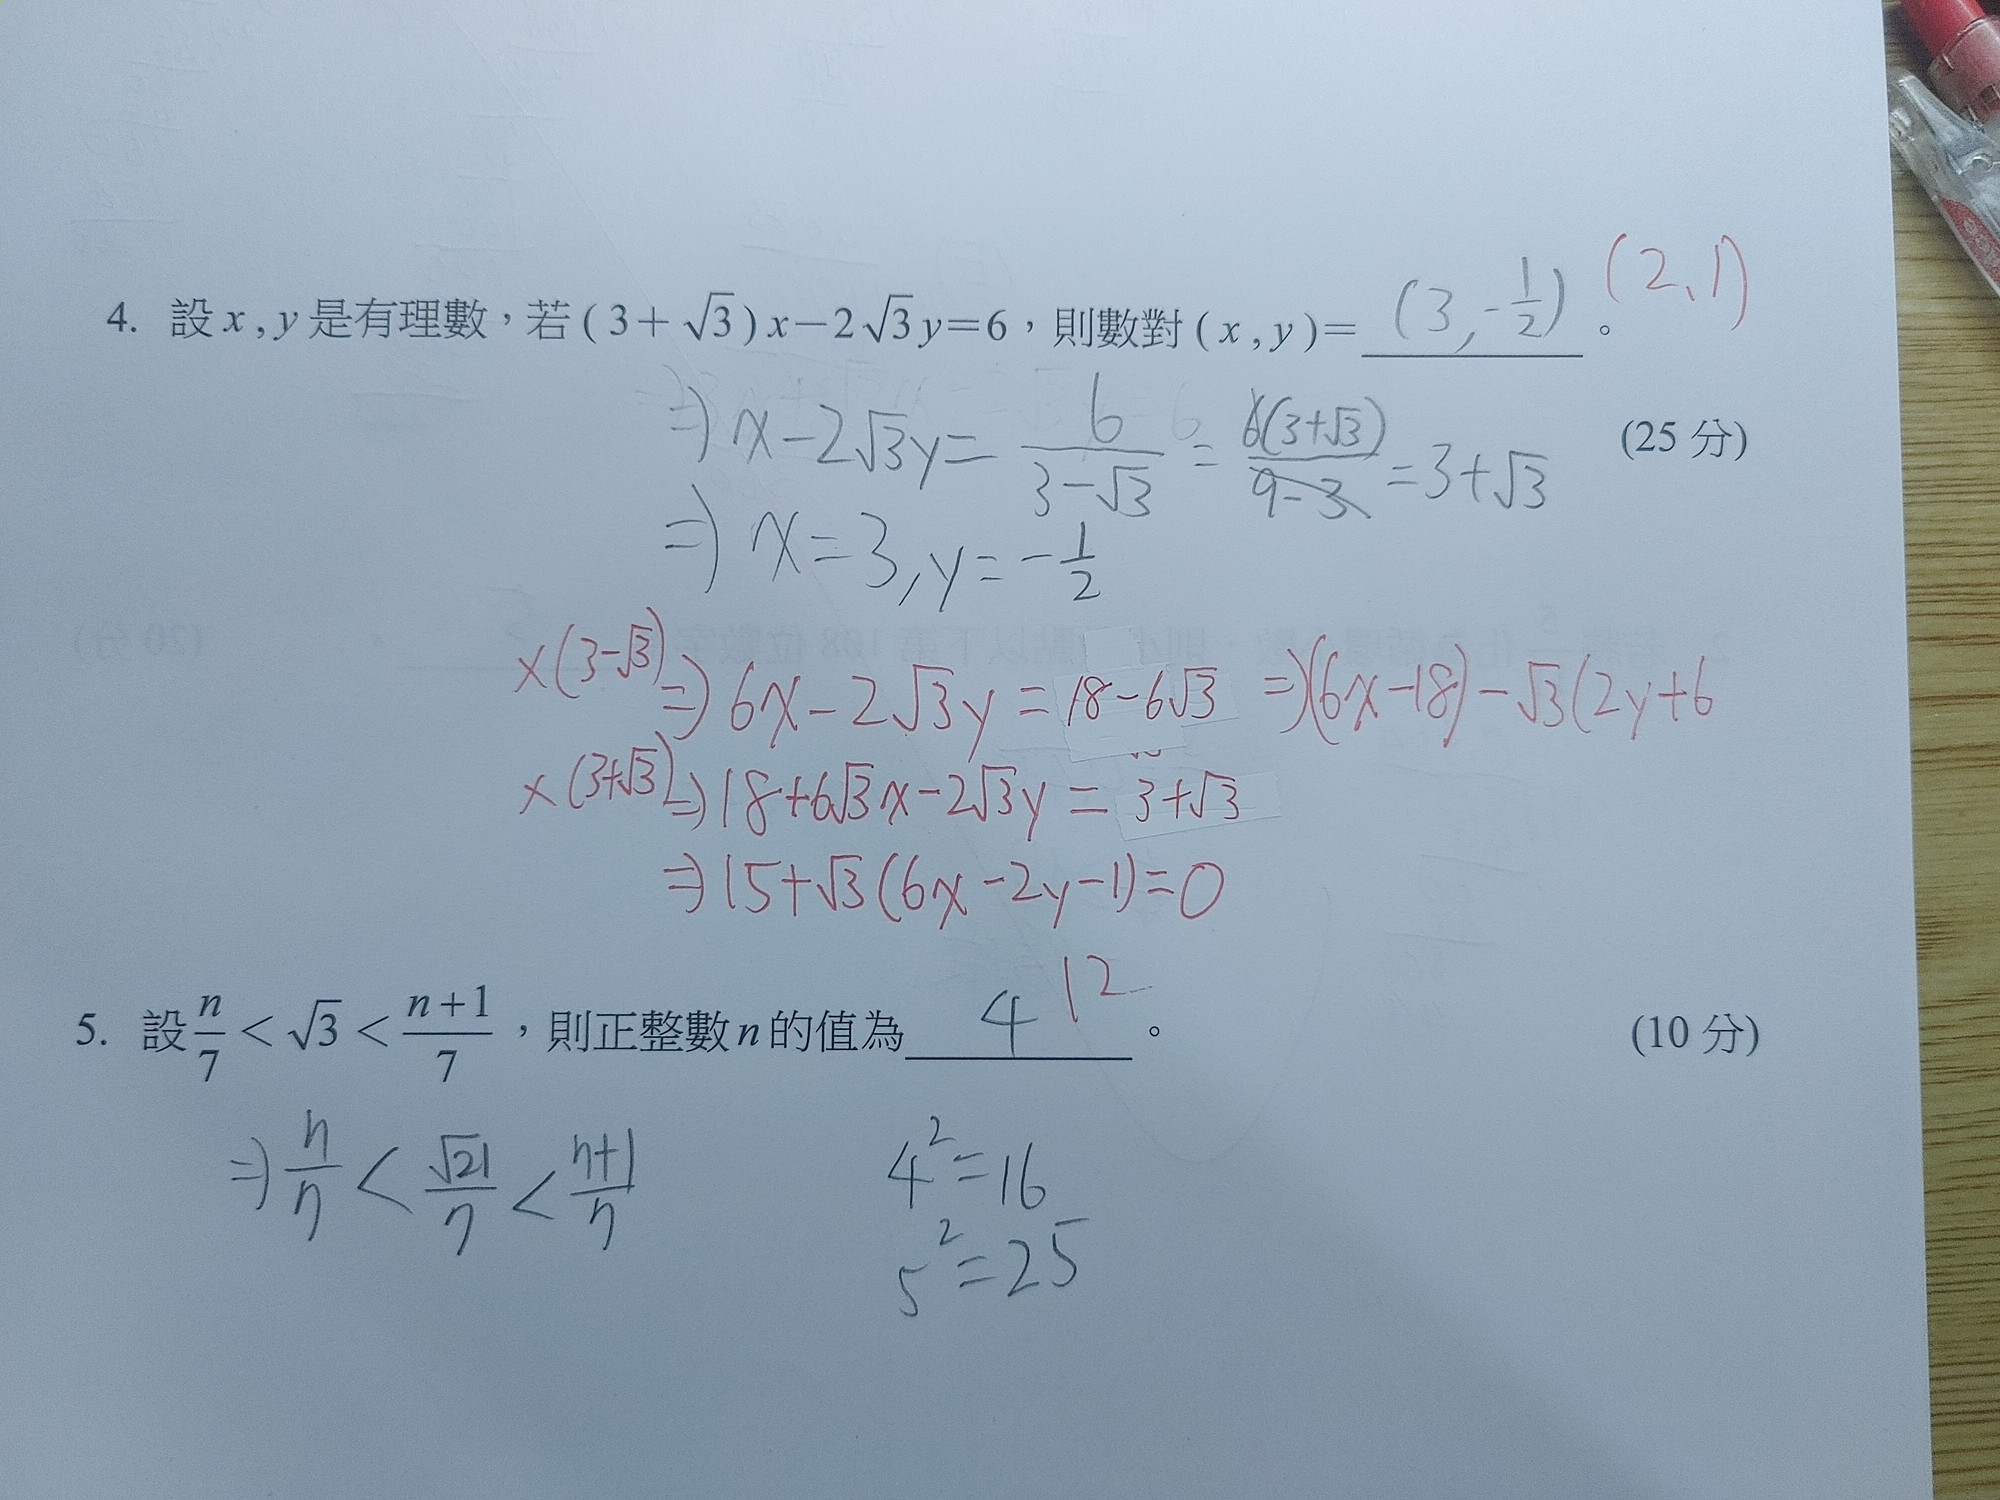 4. 設 x , y 是有理數，若 ( 3 + √3 ) x − 2√3 y = 6，則數對 ( x , y ) = (3, -1/2)。 (2、1)
(25 分)
⇒ x − 2√3y = 6/(3−√3) = 6(3+√3)/(9−3) = 3+√3
⇒ x = 3, y = −1/2
×(3−√3) ⇒ 6x − 2√3y = 18−6√3 ⇒ (6x−18)−√3(2y+6
×(3+√3) ⇒ 18+6√3x−2√3y = 3+√3
⇒ 15+√3(6x−2y−1)=0
5. 設 n/7 < √3 < (n+1)/7，則正整數 n 的值為 4 12。 (10 分)
⇒ n/7 < √21/7 < (n+1)/7
4²=16
5²=25